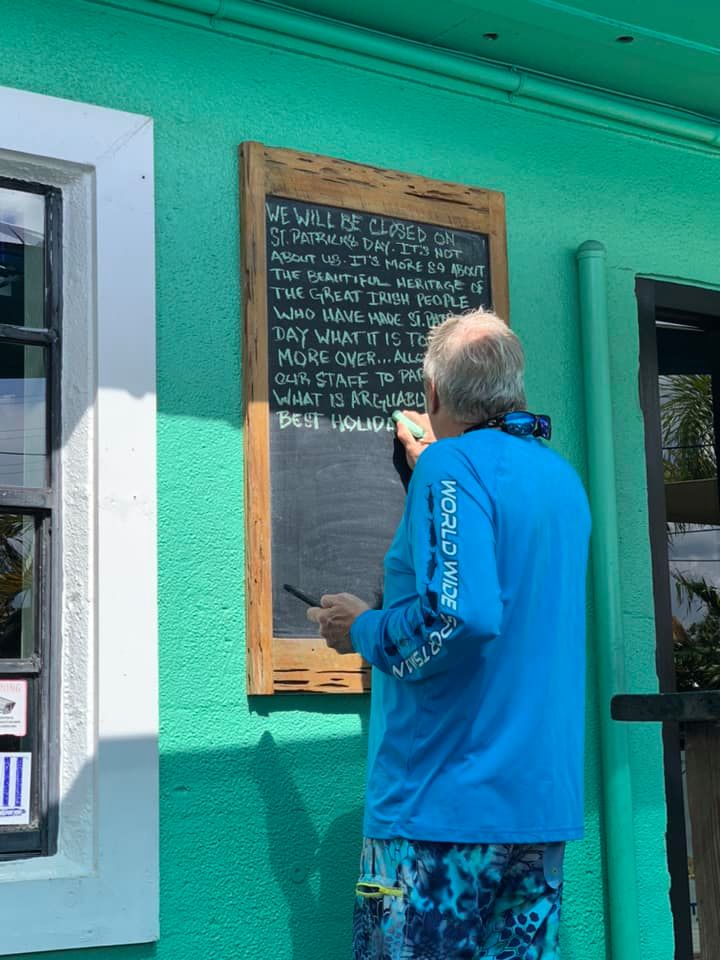 WE WILL BE CLOSED ON
ST. PATRICK'S DAY. IT'S NOT
ABOUT US. IT'S MORE SO ABOUT
THE BEAUTIFUL HERITAGE OF
THE GREAT IRISH PEOPLE
WHO HAVE MADE ST. PATR
DAY WHAT IT IS TO
MORE OVER... ALLO
OUR STAFF TO PAR
WHAT IS ARGUABLY
BEST HOLIDA
WORLD WIDE SPORTSMAN